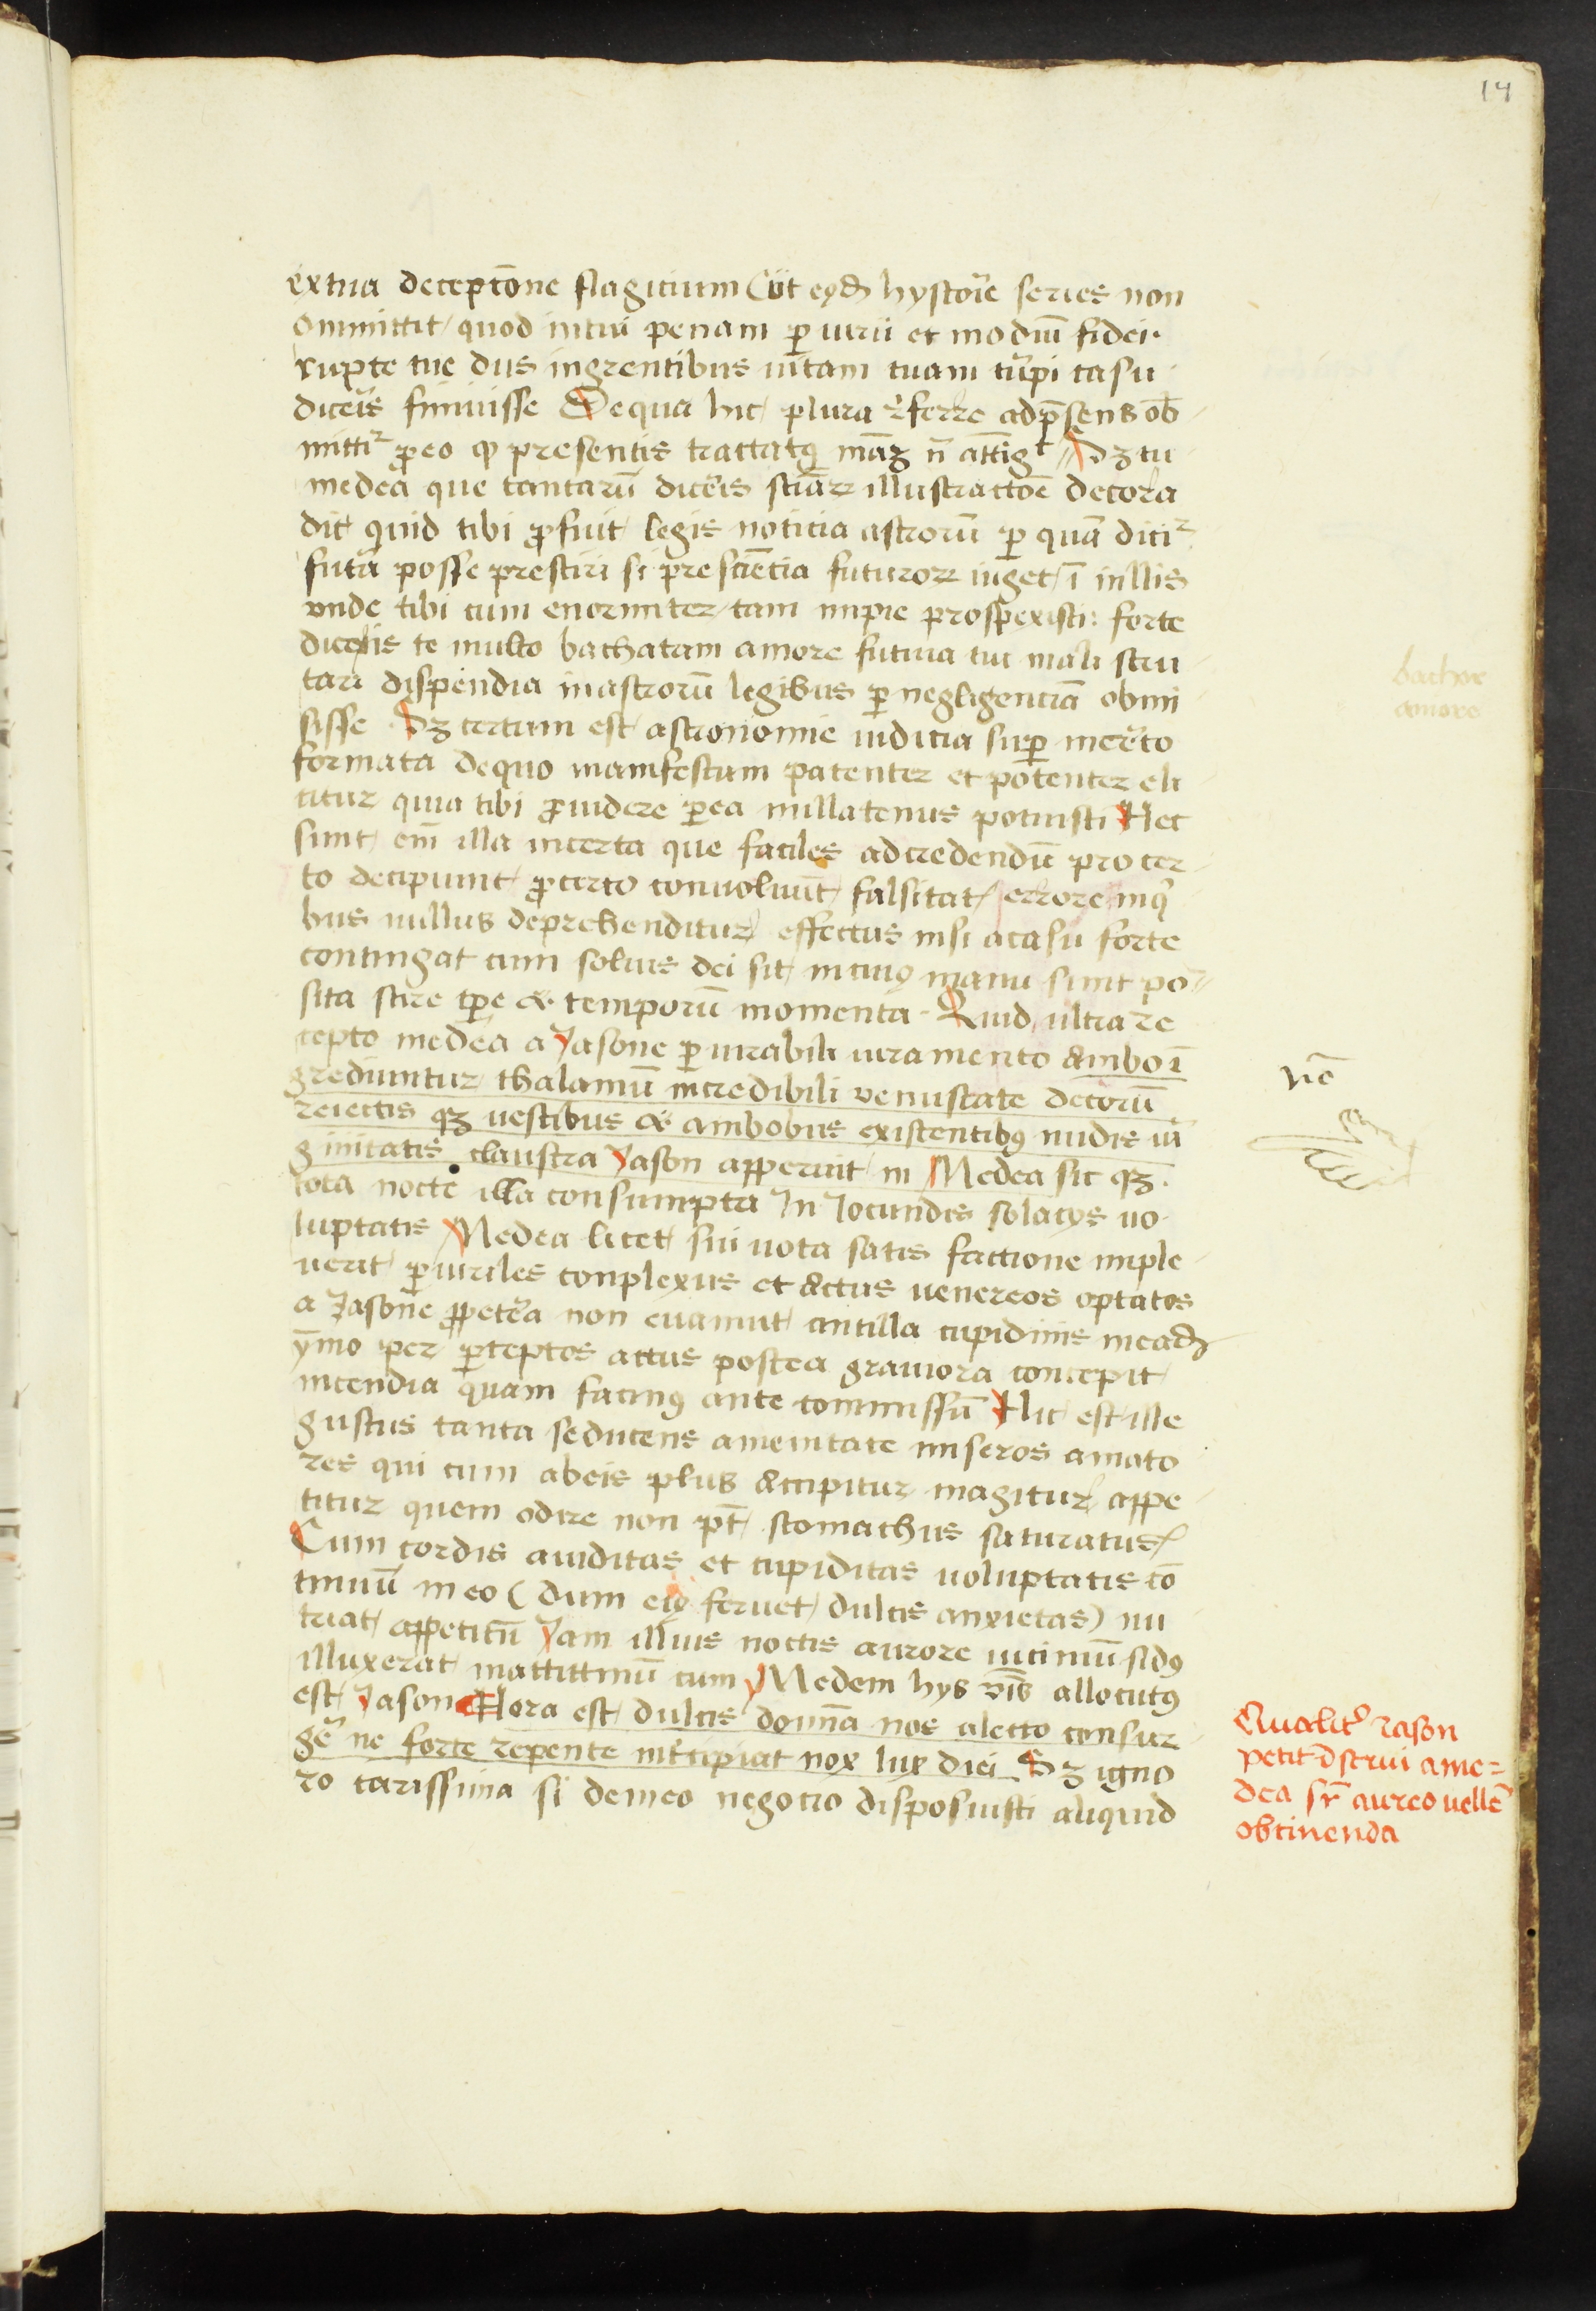 14
extua deceptōne flagicium (ut eiꝰdē hystorie series non
ommittit quod in tui penam periurii et in odiū fidei
rupte tue diis ingrentibus uitam tuam turpi casu
diceris finiuisse De qua hic plura referre ad p̄sens ob-
mittit᷑ ꝓ eo ꝙ presentis tractatꝰ mām nō atting̅t Sꝫ tu
medea que tantarū diceris sciār illustractōe decora
dic quid tibi ꝓfuit legis noticia astrorū ꝑ quā dicit᷑
futā posse presciri si prescientia futuror uiget ī illis
vnde tibi tum enormiter tam impie prospexisti: forte
diceris te multo bachatam amore futura tui mali scru
tari dispendia in astrorū legibus ꝑ negligenciā obmi
sisse Sꝫ certum est astronomie iudicia suꝑ incerto
formata de quo manifestum patenter et potenter eli
citur quia tibi ꝓuidere ꝑ ea nullatenus potuisti Hec
sunt em̄ illa incerta que faciles ad credendū pro cer-
to decipiunt ꝓ certo conuoluūt falsitatꝭ errore in qͥ
bus nullus deprehenditur effectus nisi a casu forte
contingat cum solius dei sit in cuiꝰ manu sunt po-
sita scire tꝑe & temporū momenta. Quid ultra re
cepto medea a Jasone ꝑ iurabili iuramento ambo ī
grediuntur thalamū incredibili venustate decorū
reiectis qꝫ uestibus & ambobus existentibꝰ nudis uir
ginitatis claustra Jason apperuit in Medea sic qꝫ
tota nocte illa consumpta In Jocundis solacijs uo-
luptatis Medea licet sui uota satis factione imple-
uerit ꝑ uiriles conplexus et actus uenereos optatos
a Jasone propterea non euanuit cintilla cupidinis in eadē
ȳmo per ꝑceptos actus postea grauiora concepit
incendia quam facinꝰ ante commissū Hic est ille
gustus tanta seducens amenitate miseros amato
res qui cum ab eis plus accipitur magitur appe-
titur quem odire non pt̄ stomachus saturatus
Cum cordis auiditas et cupiditas voluptatis cō
tinuū in eo (dum eiꝰ feruet dulcis anxietas) nu
triat appetitū Jam illius noctis aurore uicinū sidꝰ
illuxerat mattittinū cum Medeam hys vīs allocutꝰ
est Jason Hora est dulcis domīa nos a lecto consur
gē ne forte repente incipiat nox lux diei Sꝫ igno
ro carissima si de meo negocio disposuisti aliquid
bachor
amore
nō
Qualit᷑ iason
petit dstrui a me=
dea sr̄ aureo vellē
obtinenda